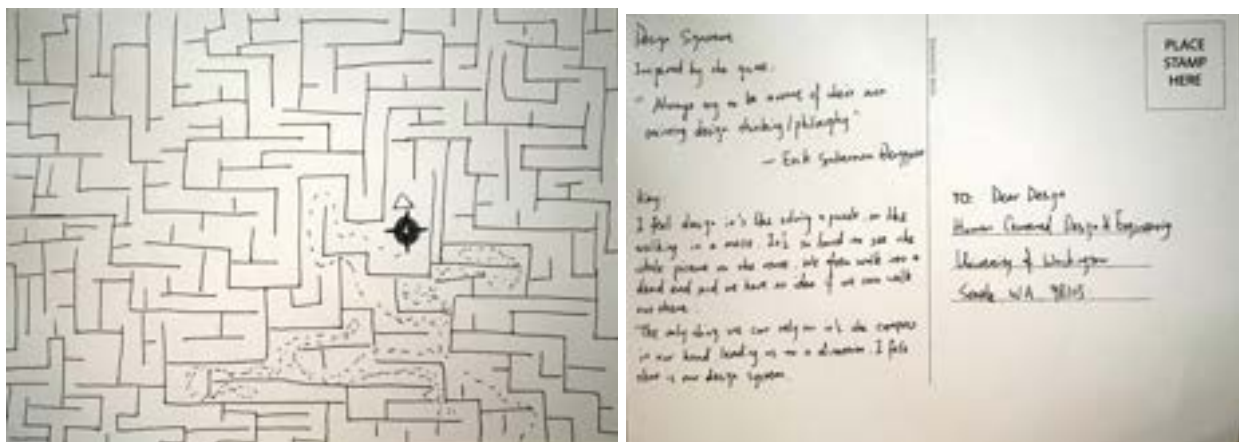 Design
Inspired by the quote:
" Always try to be aware of their own
design thinking/philosophy"
— Erik
Key:
I feel design it's like solving a puzzle or like
walking in a maze. It's so hard to see the
whole picture or the route. We often walk into a
dead end and we have no idea if we can walk
out there.
The only thing we can rely on it's the compass
in our hand leading us to a direction. I feel
that is our design
PLACE
STAMP
HERE
TO: Dear Design
Human Centered Design & Engineering
University of Washington
Seattle WA 98105